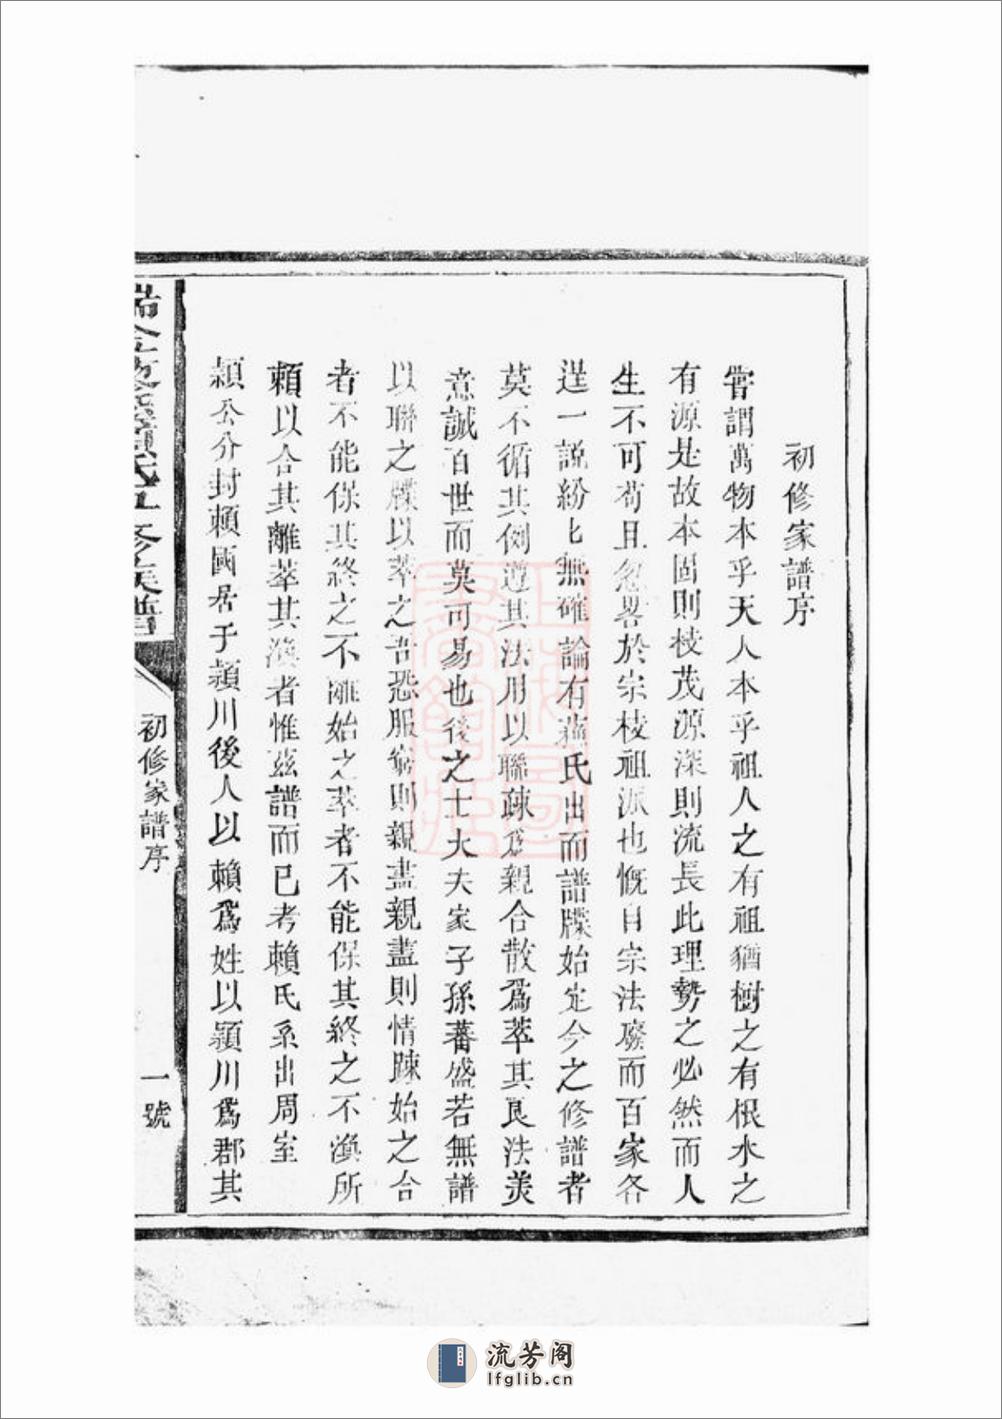 初修家譜序
嘗謂萬物本乎天人本乎祖人之有祖猶樹之有根水之
有源是故本固則枝茂源深則流長此理勢之必然而人
生不可苟且忽畧於宗枝祖派也慨自宗法廢而百家各
逞一説紛匕無確論有蘓氏出而譜牒始定今之修譜者
莫不循其例遵其法用以聯踈為親合散爲萃其良法美
意誠百世而莫可易也後之士大夫家子孫蕃盛若無譜
以聯之牒以萃之吾恐服窮則親盡親盡則情踈始之合
者不能保其終之不離始之萃者不能保其終之不渙所
賴以合其離萃其渙者惟兹譜而已考賴氏系出周室
頴公分封賴國居于頴川後人以賴爲姓以頴川爲郡其
賴氏五修族譜
初修家譜序
一號
流芳阁
lfglib.cn